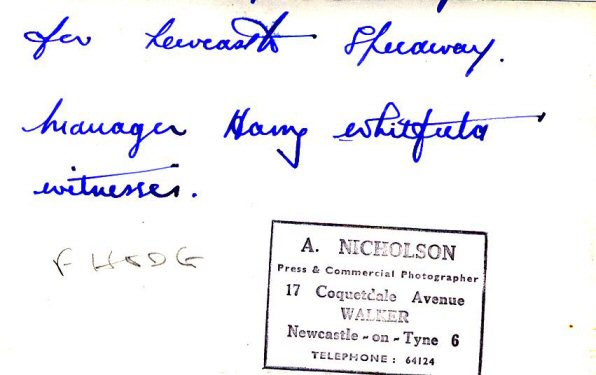 for Newcastle Speedway.
manager Harry Whitfield
witnesses.
F HSDG
A. NICHOLSON
Press & Commercial Photographer
17 Coquetdale Avenue
WALKER
Newcastle - on - Tyne 6
TELEPHONE : 64124